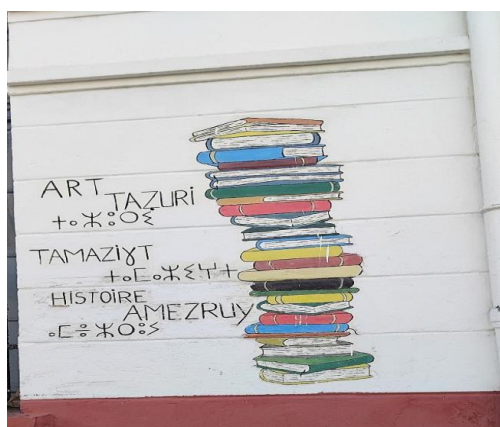 ART
TAZURI
ⵜⴰⵣⵓⵔⵉ
TAMAZIɣT
ⵜⴰⵎⴰⵣⵉⵖⵜ
HISTOIRE
AMEZRUY
ⴰⵎⴻⵣⵔⵓⵢ